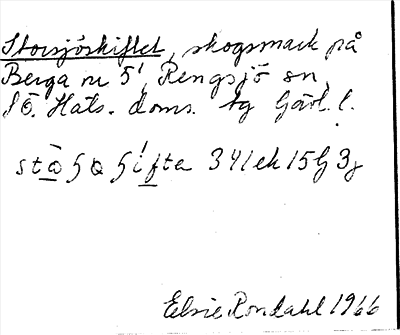 Storsjöskiftet, skogsmark på
Berga nr 5¹, Rengsjö sn,
Sö. Häls. doms. tg Gävl. l.
341 ek 15G 3
Elsie Rondahl 1966